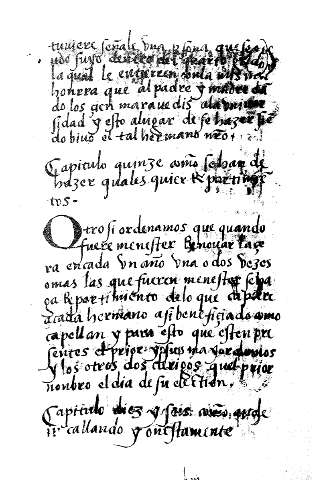 tuviere señale vna psona que sea
udo suyo dentro del quarto
la qual le entierren con la mis ma
honrra que al padre y madre dā
do los gen maravedis ala uniuer
sidad y esto alugar de se hazer siē
do bivo el tal hermano nrō
Capitulo quinze como sehan de
hazer quales quier Repartimiē
tos -
Otro si ordenamos que quando
fuere menester Renovar la çe
ra encada vn año vna o dos vezes
omas las que fueren menester seha
ga Repartimiento delo que capare
acada hermano asi beneficiado como
capellan y para esto que esten pre
sentes el prior y sus mayordomos
y los otros dos clerigos quel prior
nonbro el dia de su election.
Capitulo diez y seis como an de
yr callando y onestamente